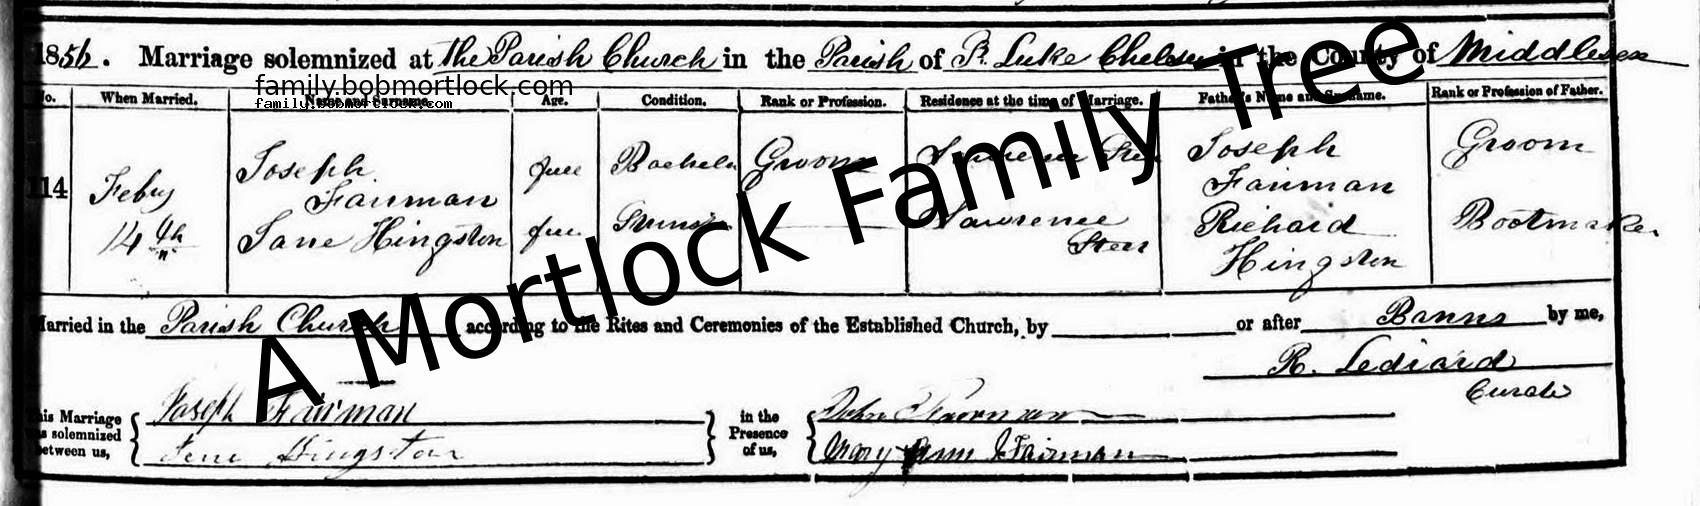 1856. Marriage solemnized at the Parish Church in the Parish of St. Luke Chelsea in the County of Middlesex
family.bobmortlock.com
family.bobmortlock.com
No. When Married. Name and Surname. Age. Condition. Rank or Profession. Residence at the time of Marriage. Father's Name and Surname. Rank or Profession of Father.
114 Feby 14th Joseph Fairman full Bachelor Groom Lawrence Street Joseph Fairman Groom
Jane Hingston full Spinster Lawrence Street Richard Hingston Bootmaker
A Mortlock Family Tree
Married in the Parish Church according to the Rites and Ceremonies of the Established Church, by or after Banns by me,
R. Lediard
Curate
This Marriage was solemnized between us, Joseph Fairman Jane Hingston in the Presence of us, John Mary Ann Fairman